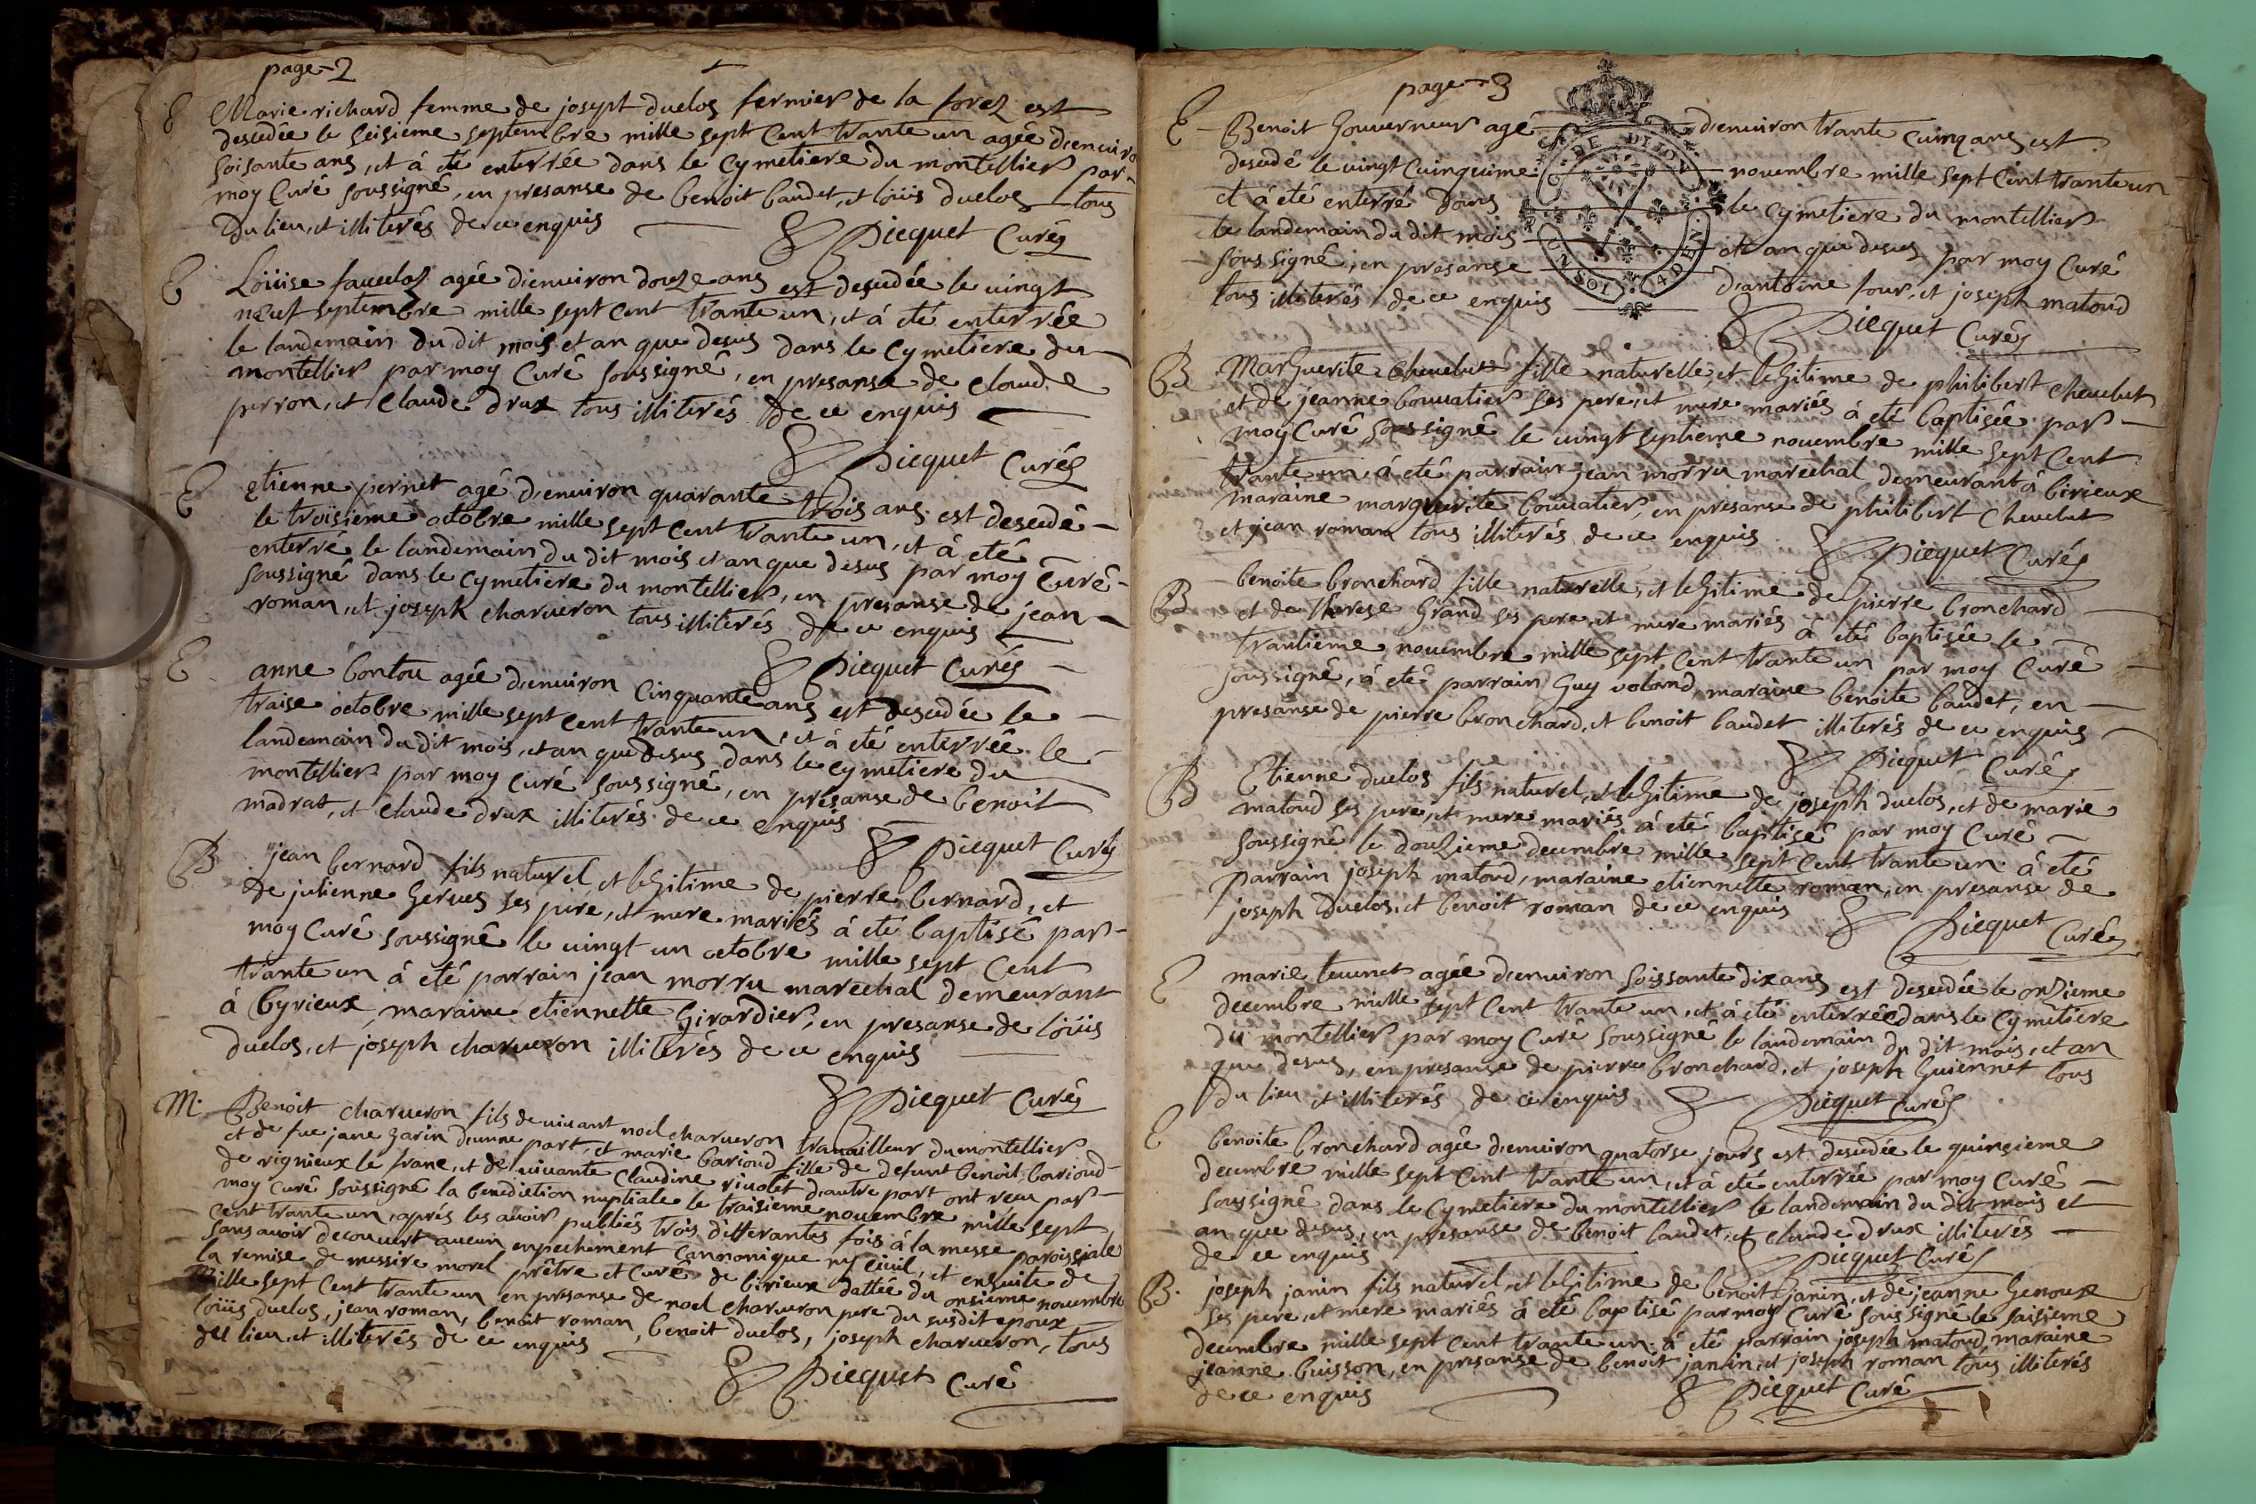 page 2
E Marie richard femme de josept duclos fermier de la forez est
descedée le seisieme septembre mille sept cent trante un agée d'enuiron
soisante ans, et à eté enterrée dans le cymetiere du montellier par
moy Curé soussigné, en presanse de benoit baudet, et loüis duclos tous
du lieu, et illiterés de ce enquis
Dicquet Curé
E Loüise fauelos agée d'enuiron douze ans est descedée le uingt
neuf septembre mille sept cent trante un, et à eté enterrée
le landemain du dit mois et an que desus dans le cymetiere du
montellier par moy Curé soussigné, en presanse de claude
perron, et Claude drux tous illiterés de ce enquis
Dicquet Curé
E etienne pernet agé d'enuiron quarante trois ans est descedé
le troisieme octobre mille sept cent trante un, et à eté
enterré le landemain du dit mois et an que desus par moy Curé
soussigné dans le cymetiere du montellier, en presanse de jean
roman, et joseph charueron tous illiterés de ce enquis
Dicquet Curé
E anne bontou agée d'enuiron cinquante ans est descedée le
traise octobre mille sept cent trante un, et à eté enterrée le
landemain du dit mois, et an que desus dans le cymetiere du
montellier par moy Curé soussigné, en presanse de benoit
madrat, et claude drux illiterés de ce enquis
Dicquet Curé
B jean bernard fils naturel, et leGitime de pierre bernard, et
de julienne Gerues ses pere, et mere mariés à eté baptisé par
moy Curé soussigné le uingt un octobre mille sept cent
trante un à eté parrain jean morru marechal demeurant
à byrieux, maraine etiennette Girardier, en presanse de loüis
duclos, et joseph charueron illiterés de ce enquis
Dicquet Curé
M. Benoit charueron fils de uiuant noel charueron trauailleur du montellier
et de fue jane Zarin d'unne part, et marie barioud fille de defunt benoit barioud
de rignieux le franc, et de uiuante Claudine riuolet d'autre part ont recu par
moy curé soussigné la benediction nuptiale le traisieme nouembre mille sept
cent trante un, aprés les auoir publiés trois differantes fois à la messe paroissiale
sans auoir decouuert aucun enpechement cannonique ny ciuil, et ensuite de
la remise de messire morel prêtre et curé de birieux dattée du onsieme nouembre
mille sept cent trante un en presanse de noel charueron pere du susdit epoux
loüis duclos, jean roman, benoit roman, benoit duclos, joseph charueron, tous
du lieu, et illiterés de ce enquis
Dicquet curé
page 3
E Benoit Gouuerneur agé d'enuiron trante cuinq ans est
descedé le uingt cuinquime nouembre mille sept cent trante un
et à eté enterré dans le cymetiere du montellier
le landemain du dit mois et an que desus par moy Curé
soussigné, en presanse d'antoine four, et joseph matoud
tous illiterés de ce enquis
G. DE DIJON
4 DEN.
Dicquet Curé
B MarGuerite cheuelut fille naturelle, et leGitime de philibert cheuelut
et de jeanne bouuatier ses pere, et mere mariés à eté baptisée par
moy Curé soussigné le uingt septieme nouembre mille sept cent
trante un, à eté parrain jean morru marechal demeurant à birieux
maraine marguerite bouuatier, en presanse de philibert cheuelut
et jean roman tous illiterés de ce enquis
Dicquet Curé
B benoite bronchard fille naturelle, et leGitime de pierre bronchard
et de therese Grand ses pere, et mere mariés à eté baptisée le
trantieme nouembre mille sept cent trante un par moy Curé
soussigné, à eté parrain Guy uoland, maraine benoite baudet, en
presanse de pierre bronchard, et benoit baudet illiterés de ce enquis
Dicquet Curé
B Etienne duclos fils naturel, et leGitime de joseph duclos, et de marie
matoud ses pere, et mere mariés à eté baptisé par moy Curé
soussigné le douZieme decembre mille sept cent trante un à eté
parrain joseph matoud, maraine etiennette roman, en presanse de
joseph duclos, et benoit roman de ce enquis
Dicquet Curé
E marie teuenet agée d'enuiron soissante dix ans est descedée le onZieme
decembre mille sept cent trante un, et à eté enterrée dans le cymetiere
du montellier par moy Curé soussigné le landemain du dit mois, et an
que desus, en presanse de pierre bronchard, et joseph Guiennet tous
du lieu et illiterés de ce enquis
Dicquet Curé
E benoite bronchard agée d'enuiron quatorse jours est descedée le quinsieme
decembre mille sept cent trante un, et à eté enterrée par moy Curé
soussigné dans le cymetiere du montellier le landemain du dit mois et
an que desus, en presanse de benoit baudet, et claude drux illiterés
de ce enquis
Dicquet Curé
B. joseph janin fils naturel, et leGitime de benoit janin, et de jeanne Genoux
ses pere, et mere mariés à eté baptisé par moy Curé soussigné le saisieme
decembre mille sept cent trante un à eté parrain joseph matoud, maraine
jeanne buisson, en presanse de benoit janin, et joseph roman tous illiterés
de ce enquis
Dicquet Curé